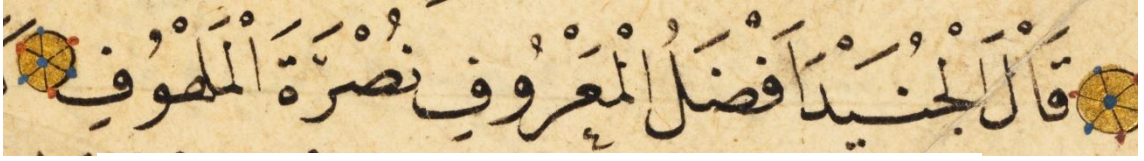 قَالَ الْجُنَيْدُ اَفْضَلُ الْمَعْرُوفِ نُصْرَةُ الْمَلْهُوفِ